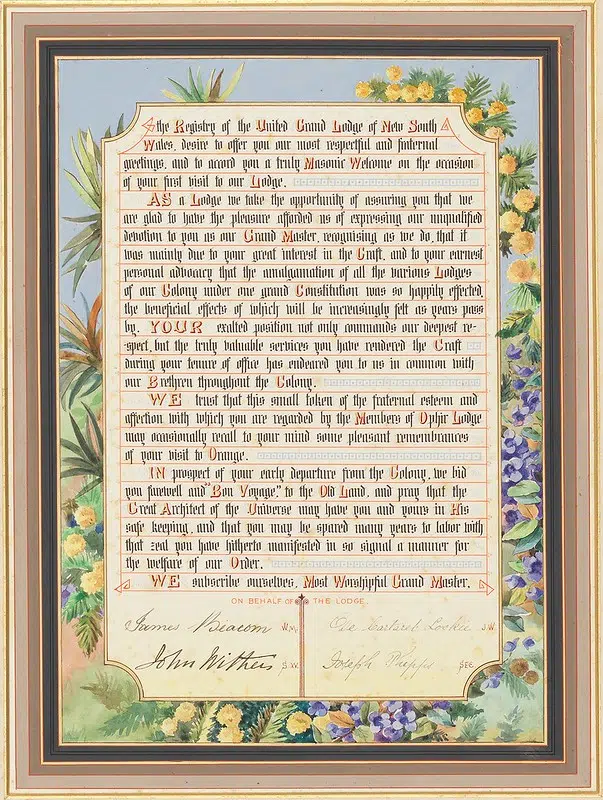 the Registry of the United Grand Lodge of New South
Wales, desire to offer you our most respectful and fraternal
greetings, and to accord you a truly Masonic Welcome on the occasion
of your first visit to our Lodge.
AS a Lodge we take the opportunity of assuring you that we
are glad to have the pleasure afforded us of expressing our unqualified
devotion to you as our Grand Master, recognising as we do, that it
was mainly due to your great interest in the Craft, and to your earnest
personal advocacy that the amalgamation of all the various Lodges
of our Colony under one grand Constitution was so happily effected,
the beneficial effects of which will be increasingly felt as years pass
by. YOUR exalted position not only commands our deepest re-
spect, but the truly valuable services you have rendered the Craft
during your tenure of office has endeared you to us in common with
our Brethren throughout the Colony.
WE trust that this small token of the fraternal esteem and
affection with which you are regarded by the Members of Ophir Lodge
may occasionally recall to your mind some pleasant remembrances
of your visit to Orange.
IN prospect of your early departure from the Colony, we bid
you farewell and "Bon Voyage," to the Old Land, and pray that the
Great Architect of the Universe may have you and yours in His
safe keeping, and that you may be spared many years to labor with
that zeal you have hitherto manifested in so signal a manner for
the welfare of our Order.
WE subscribe ourselves, Most Worshipful Grand Master,
ON BEHALF OF THE LODGE.
James Beacom W.M.
Carteret J.W.
John Withers S.W.
Joseph SEC